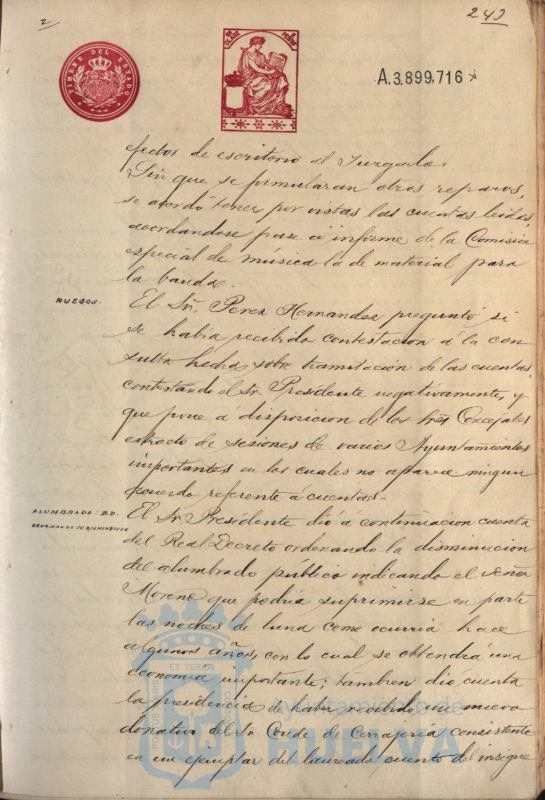 2
243
TIMBRE DEL ESTADO
A.3.899,716 *
efectos de escritorio al Juzgado.
Sin que se formularan otros reparos,
se acordó tener por vistas las cuentas leidas,
acordandose pase á informe de la Comisión
especial de musica la de material para
la banda.
RUEGOS.
El Sr. Perez Hernandez preguntó si
se había recibido contestacion á la con
sulta hecha sobre tramitación de las cuentas,
contestando el Sr. Presidente negativamente, y
que pone á disposicion de los Sres Concejales
extracto de sesiones de varios Ayuntamientos
importantes en los cuales no aparece ningun
acuerdo referente á cuentas.-
ALUMBRADO: R.D.
ORDENANDO SU DISMINUCION
El Sr. Presidente dió á continuacion cuenta
del Real Decreto ordenando la disminucion
del alumbrado público indicando el señor
Moreno que podria suprimirse en parte
las noches de luna como ocurria hace
algunos años, con lo cual se obtendrá una
economia importante; tambien dió cuenta
la presidencia de haber recibido un nuevo
donativo del Sr Conde de Cerrajeria consistente
en un ejemplar del laureado cuento del insigne
Ayuntamiento de
HUELVA